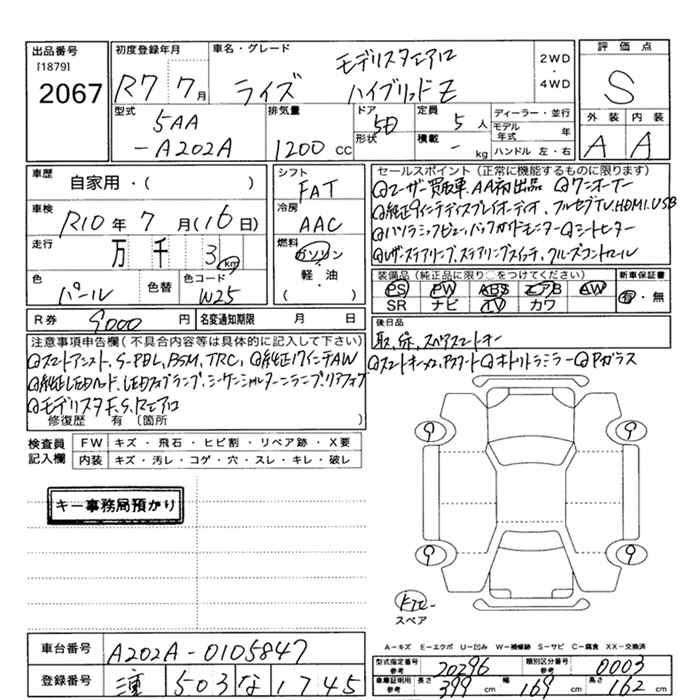 出品番号
[1879]
2067
初度登録年月
R7 7月
車名・グレード
モデリスタエアロ
ライズ ハイブリッドZ
2WD
・
4WD
評価点
S
型式
5AA
-A202A
排気量
1200 cc
ドア
5D
形状
定員
5人
積載
- kg
ディーラー・並行
モデル年式 年
ハンドル 左・右
外装 内装
A A
車歴
自家用・( )
車検
R10年7月(16日)
走行
万 千 3 km
色
パール
色替
色コード
W25
シフト
FAT
冷房
AAC
燃料
ガソリン
・
軽・油
( )
セールスポイント(正常に機能するものに限ります)
◎ユーザー買取車、AA初出品 ◎ワンオーナー
◎純正9インチディスプレイオーディオ、フルセグTV、HDMI、USB
◎パノラミックビュー、バックガイドモニター◎シートヒーター
◎レザーステアリング、ステアリングスイッチ、クルーズコントロール
装備品(純正品に限り○をつけてください)
PS PW ABS エアB AW
SR ナビ TV カワ
新車保証書
有・無
R券 9000 円
名変通知期限 月 日
後日品
取、保、スペアスマートキー
注意事項申告欄(不具合内容等は具体的に記入して下さい)
◎スマートアシスト、S-PBL、BSM、TRC、◎純正17インチAW
◎スマートキー×2、プッシュスタート◎オートリトラミラー◎Pガラス
◎純正LEDヘッド、LEDフォグランプ、シーケンシャルターンランプ、リアフォグ
◎モデリスタF、S、Rエアロ
修復歴 有 〔箇所 〕
検査員記入欄
FW キズ・飛石・ヒビ割・リペア跡・X要
内装 キズ・汚レ・コゲ・穴・スレ・キレ・破レ
キー事務局預かり
9 9
9 9
スペア
A-キズ E-エクボ U-凹み W-補修跡 S-サビ C-腐食 XX-交換済
車台番号 A202A-0105847
登録番号 503 な 1745
型式指定番号 参考 20296
類別区分番号 参考 0003
車庫証明用 参考
長さ 399 cm
幅 169 cm
高さ 162 cm